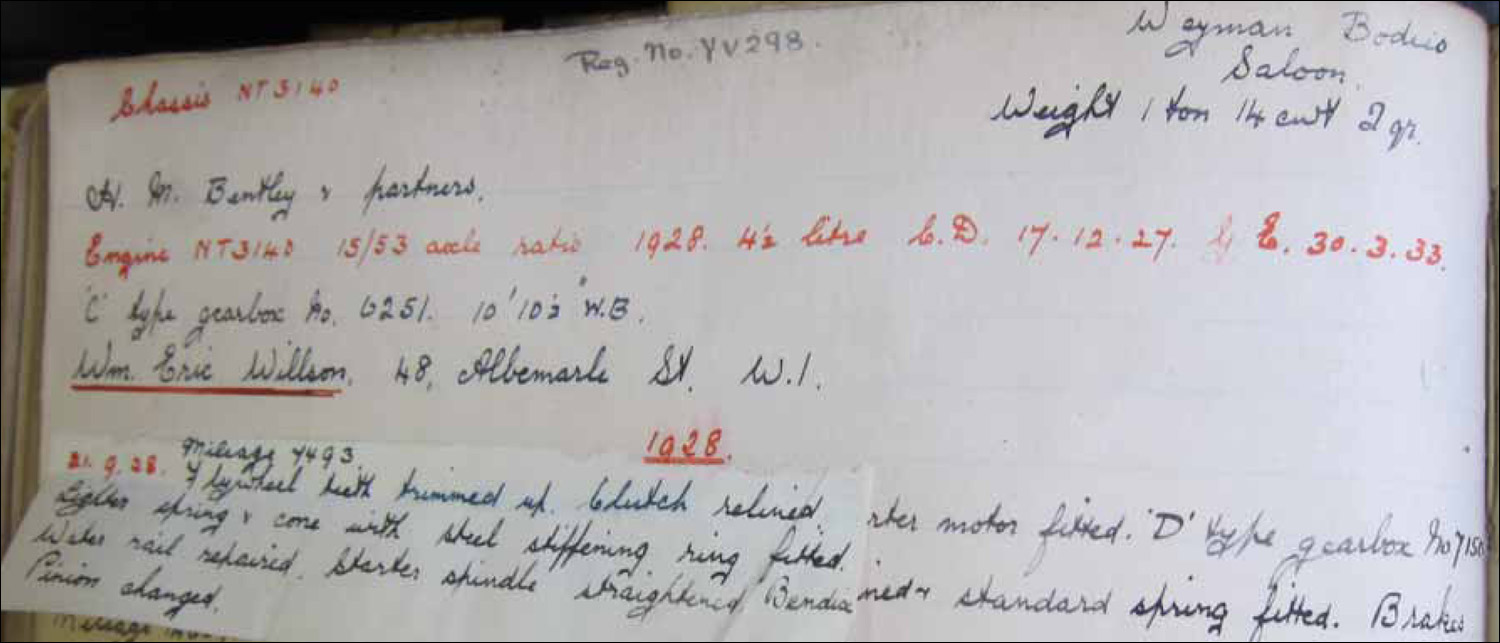 Reg. No. YV298.
Weyman Bodies
Saloon.
Chassis NT3140
Weight 1 ton 14 cwt 2 qr.
H. M. Bentley & partners.
Engine NT3140 15/53 axle ratio 1928. 4½ litre C.D. 17.12.27. G E. 30.3.33.
'C' type gearbox No. 6251. 10'10½" W.B.
Wm. Eric Willson, 48, Albemarle St. W.1.
1928.
21.9.28. Mileage 7493
Flywheel teeth trimmed up. Clutch relined.
Lighter spring & cone with steel stiffening ring fitted.
Water rail repaired. Starter spindle straightened. Bendix
Pinion changed.
rter motor fitted. 'D' type gearbox No 7150
ned & standard spring fitted. Brakes
Mileage